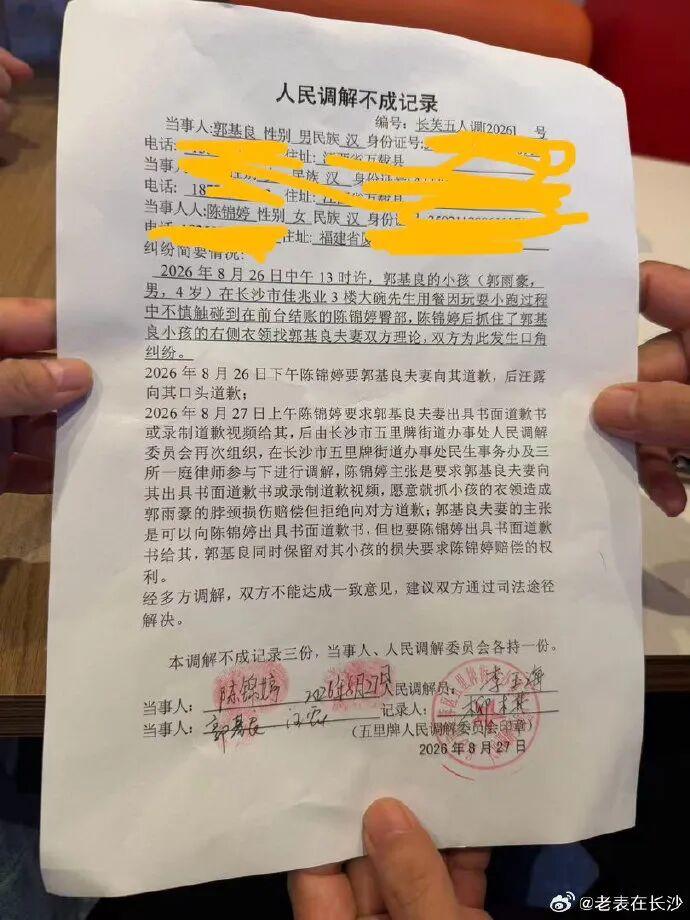 人民调解不成记录
编号：长芙五人调[2026] 号
当事人:郭基良 性别 男民族 汉 身份证号:
电话: 住址:
当事人 性别 民族 汉 身份证
电话: 187 住址:
当事人人:陈锦婷 性别 女 民族 汉 身份证
住址: 福建省
纠纷简要情况:
2026年8月26日中午13时许，郭基良的小孩（郭雨豪，
男，4岁）在长沙市佳兆业3楼大碗先生用餐因玩耍小跑过程
中不慎触碰到在前台结账的陈锦婷臀部，陈锦婷后抓住了郭基
良小孩的右侧衣领找郭基良夫妻双方理论，双方为此发生口角
纠纷。
2026年8月26日下午陈锦婷要郭基良夫妻向其道歉，后汪露
向其口头道歉；
2026年8月27日上午陈锦婷要求郭基良夫妻出具书面道歉书
或录制道歉视频给其，后由长沙市五里牌街道办事处人民调解
委员会再次组织，在长沙市五里牌街道办事处民生事务办及三
所一庭律师参与下进行调解，陈锦婷主张是要求郭基良夫妻向
其出具书面道歉书或录制道歉视频，愿意就抓小孩的衣领造成
郭雨豪的脖领损伤赔偿但拒绝向对方道歉；郭基良夫妻的主张
是可以向陈锦婷出具书面道歉书，但也要陈锦婷出具书面道歉
书给其，郭基良同时保留对其小孩的损失要求陈锦婷赔偿的权
利。
经多方调解，双方不能达成一致意见，建议双方通过司法途径
解决。
本调解不成记录三份，当事人、人民调解委员会各持一份。
当事人： 陈锦婷 2026年8月27日 人民调解员：
当事人： 郭基良 汪露 记录人：
（五里牌人民调解委员会印章）
2026年8月27日
@老表在长沙